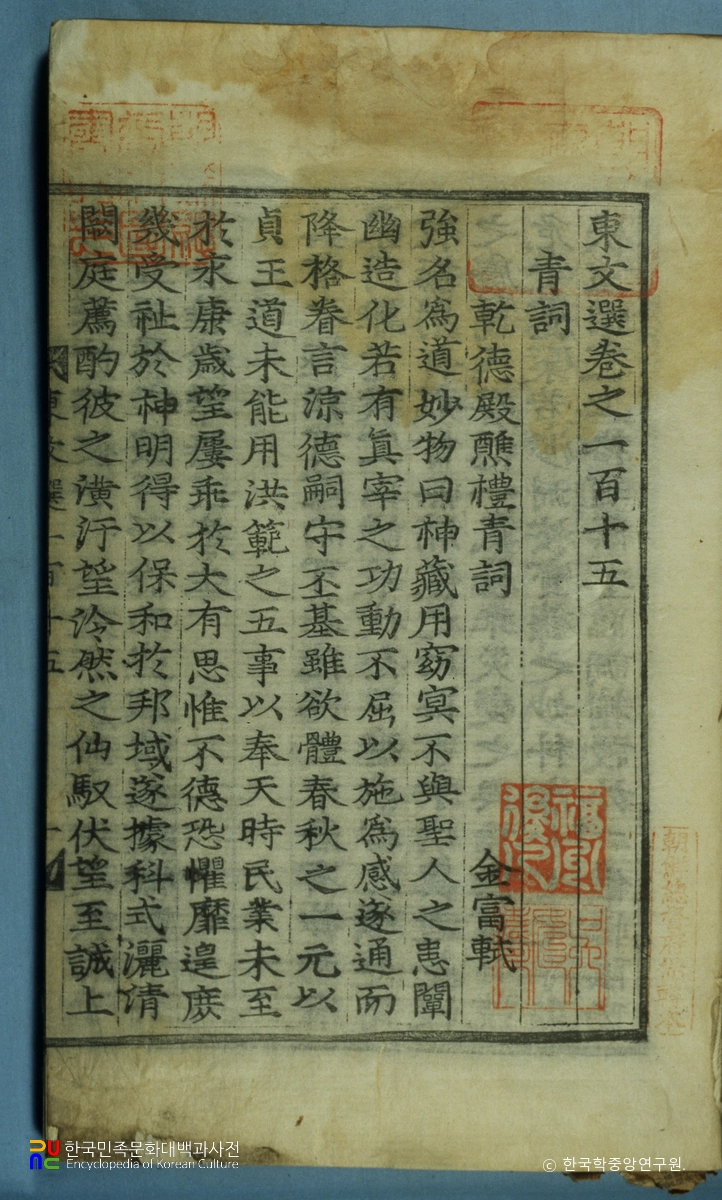 東文選卷之一百十五
青詞
乾德殿醮禮青詞
金富軾
強名爲道妙物曰神藏用窈冥不與聖人之患闡
幽造化若有眞宰之功動不屈以施爲感遂通而
降格眷言涼德嗣守丕基雖欲體春秋之一元以
貞王道未能用洪範之五事以奉天時民業未至
於永康歲望屢乖於大有思惟不德恐懼靡遑庶
幾受祉於神明得以保和於邦域遂據科式灑倩
閟庭薦酌彼之潢汙望泠然之仙馭伏望至誠上
東文選一百十五
한국민족문화대백과사전
Encyclopedia of Korean Culture
ⓒ 한국학중앙연구원.